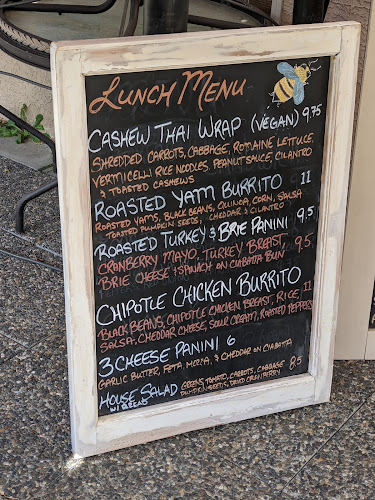 LUNCH MENU
CASHEW THAI WRAP (VEGAN) 9.75
SHREDDED CARROTS, CABBAGE, ROMAINE LETTUCE,
VERMICELLI RICE NOODLES, PEANUT SAUCE, CILANTRO
& TOASTED CASHEWS
ROASTED YAM BURRITO 11
ROASTED YAMS, BLACK BEANS, QUINOA, CORN, SALSA
TOASTED PUMPKIN SEEDS, CHEDDAR & CILANTRO
ROASTED TURKEY & BRIE PANINI 9.5
CRANBERRY MAYO, TURKEY BREAST, 9.5
BRIE CHEESE & SPINACH ON CIABATTA BUN
CHIPOTLE CHICKEN BURRITO
BLACK BEANS, CHIPOTLE CHICKEN BREAST, RICE, 11
SALSA, CHEDDAR CHEESE, SOUR CREAM, ROASTED PEPPERS
3 CHEESE PANINI 6
GARLIC BUTTER, FETA, MOZZA, & CHEDDAR ON CIABATTA
HOUSE SALAD GREENS, TOMATO, CARROTS, CABBAGE 8.5
W/ GREENS PUMPKIN SEEDS, DRIED CRANBERRY